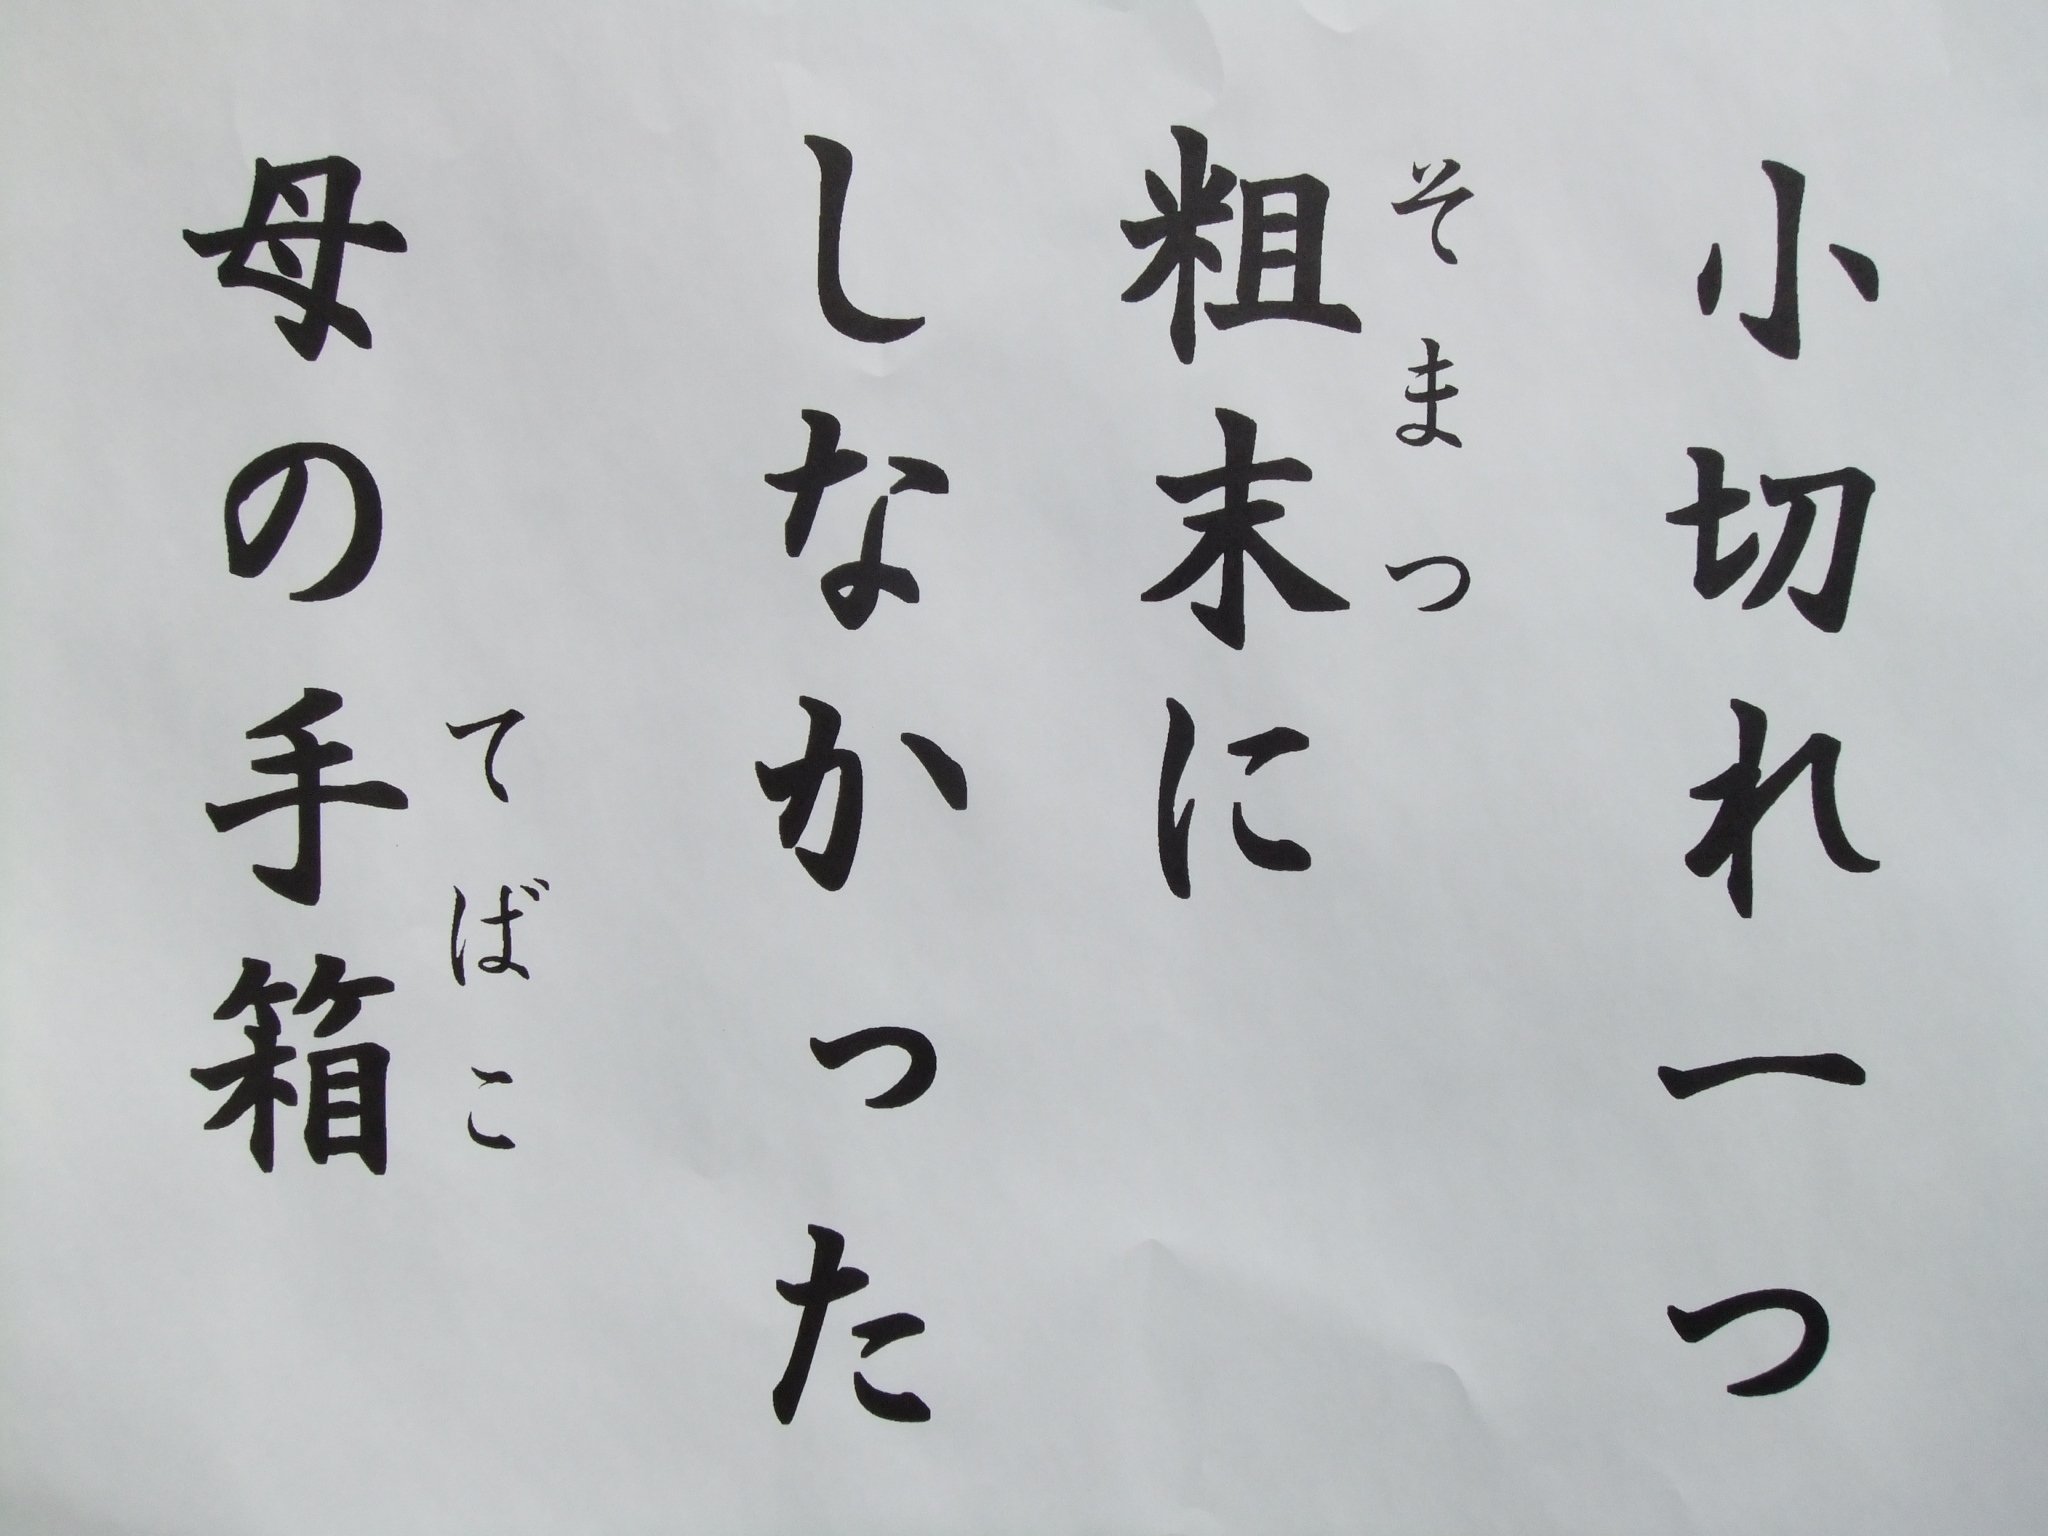 小切れ一つ
粗末に
そまつ
しなかった
母の手箱
てばこ